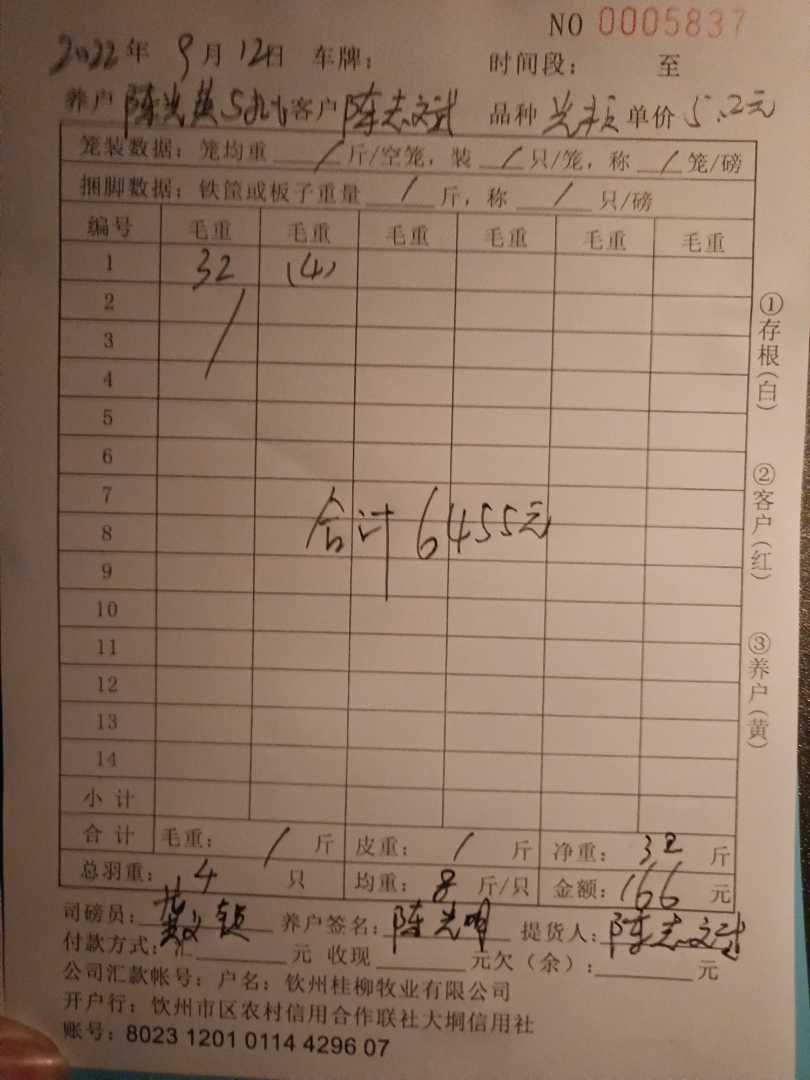 NO 0005837
2022年 9月 12日 车牌： 时间段： 至
养户 陈光 客户 陈志文 品种 单价 5.2元
笼装数据：笼均重 / 斤/空笼，装 / 只/笼，称 / 笼/磅
捆脚数据：铁筐或板子重量 / 斤，称 / 只/磅
编号 毛重 毛重 毛重 毛重 毛重 毛重
1 32 (4)
2
3
4
5
6
7
合计 6455元
8
9
10
11
12
13
14
小计
合计 毛重： / 斤 皮重： / 斤 净重： 32 斤
总羽重： 4 只 均重： 8 斤/只 金额： 166 元
司磅员： 养户签名： 陈光明 提货人： 陈志文
付款方式：汇 元 收现 元欠（余）： 元
公司汇款帐号：户名：钦州桂柳牧业有限公司
开户行：钦州市区农村信用合作联社大垌信用社
账号：8023 1201 0114 4296 07
①存根（白）
②客户（红）
③养户（黄）